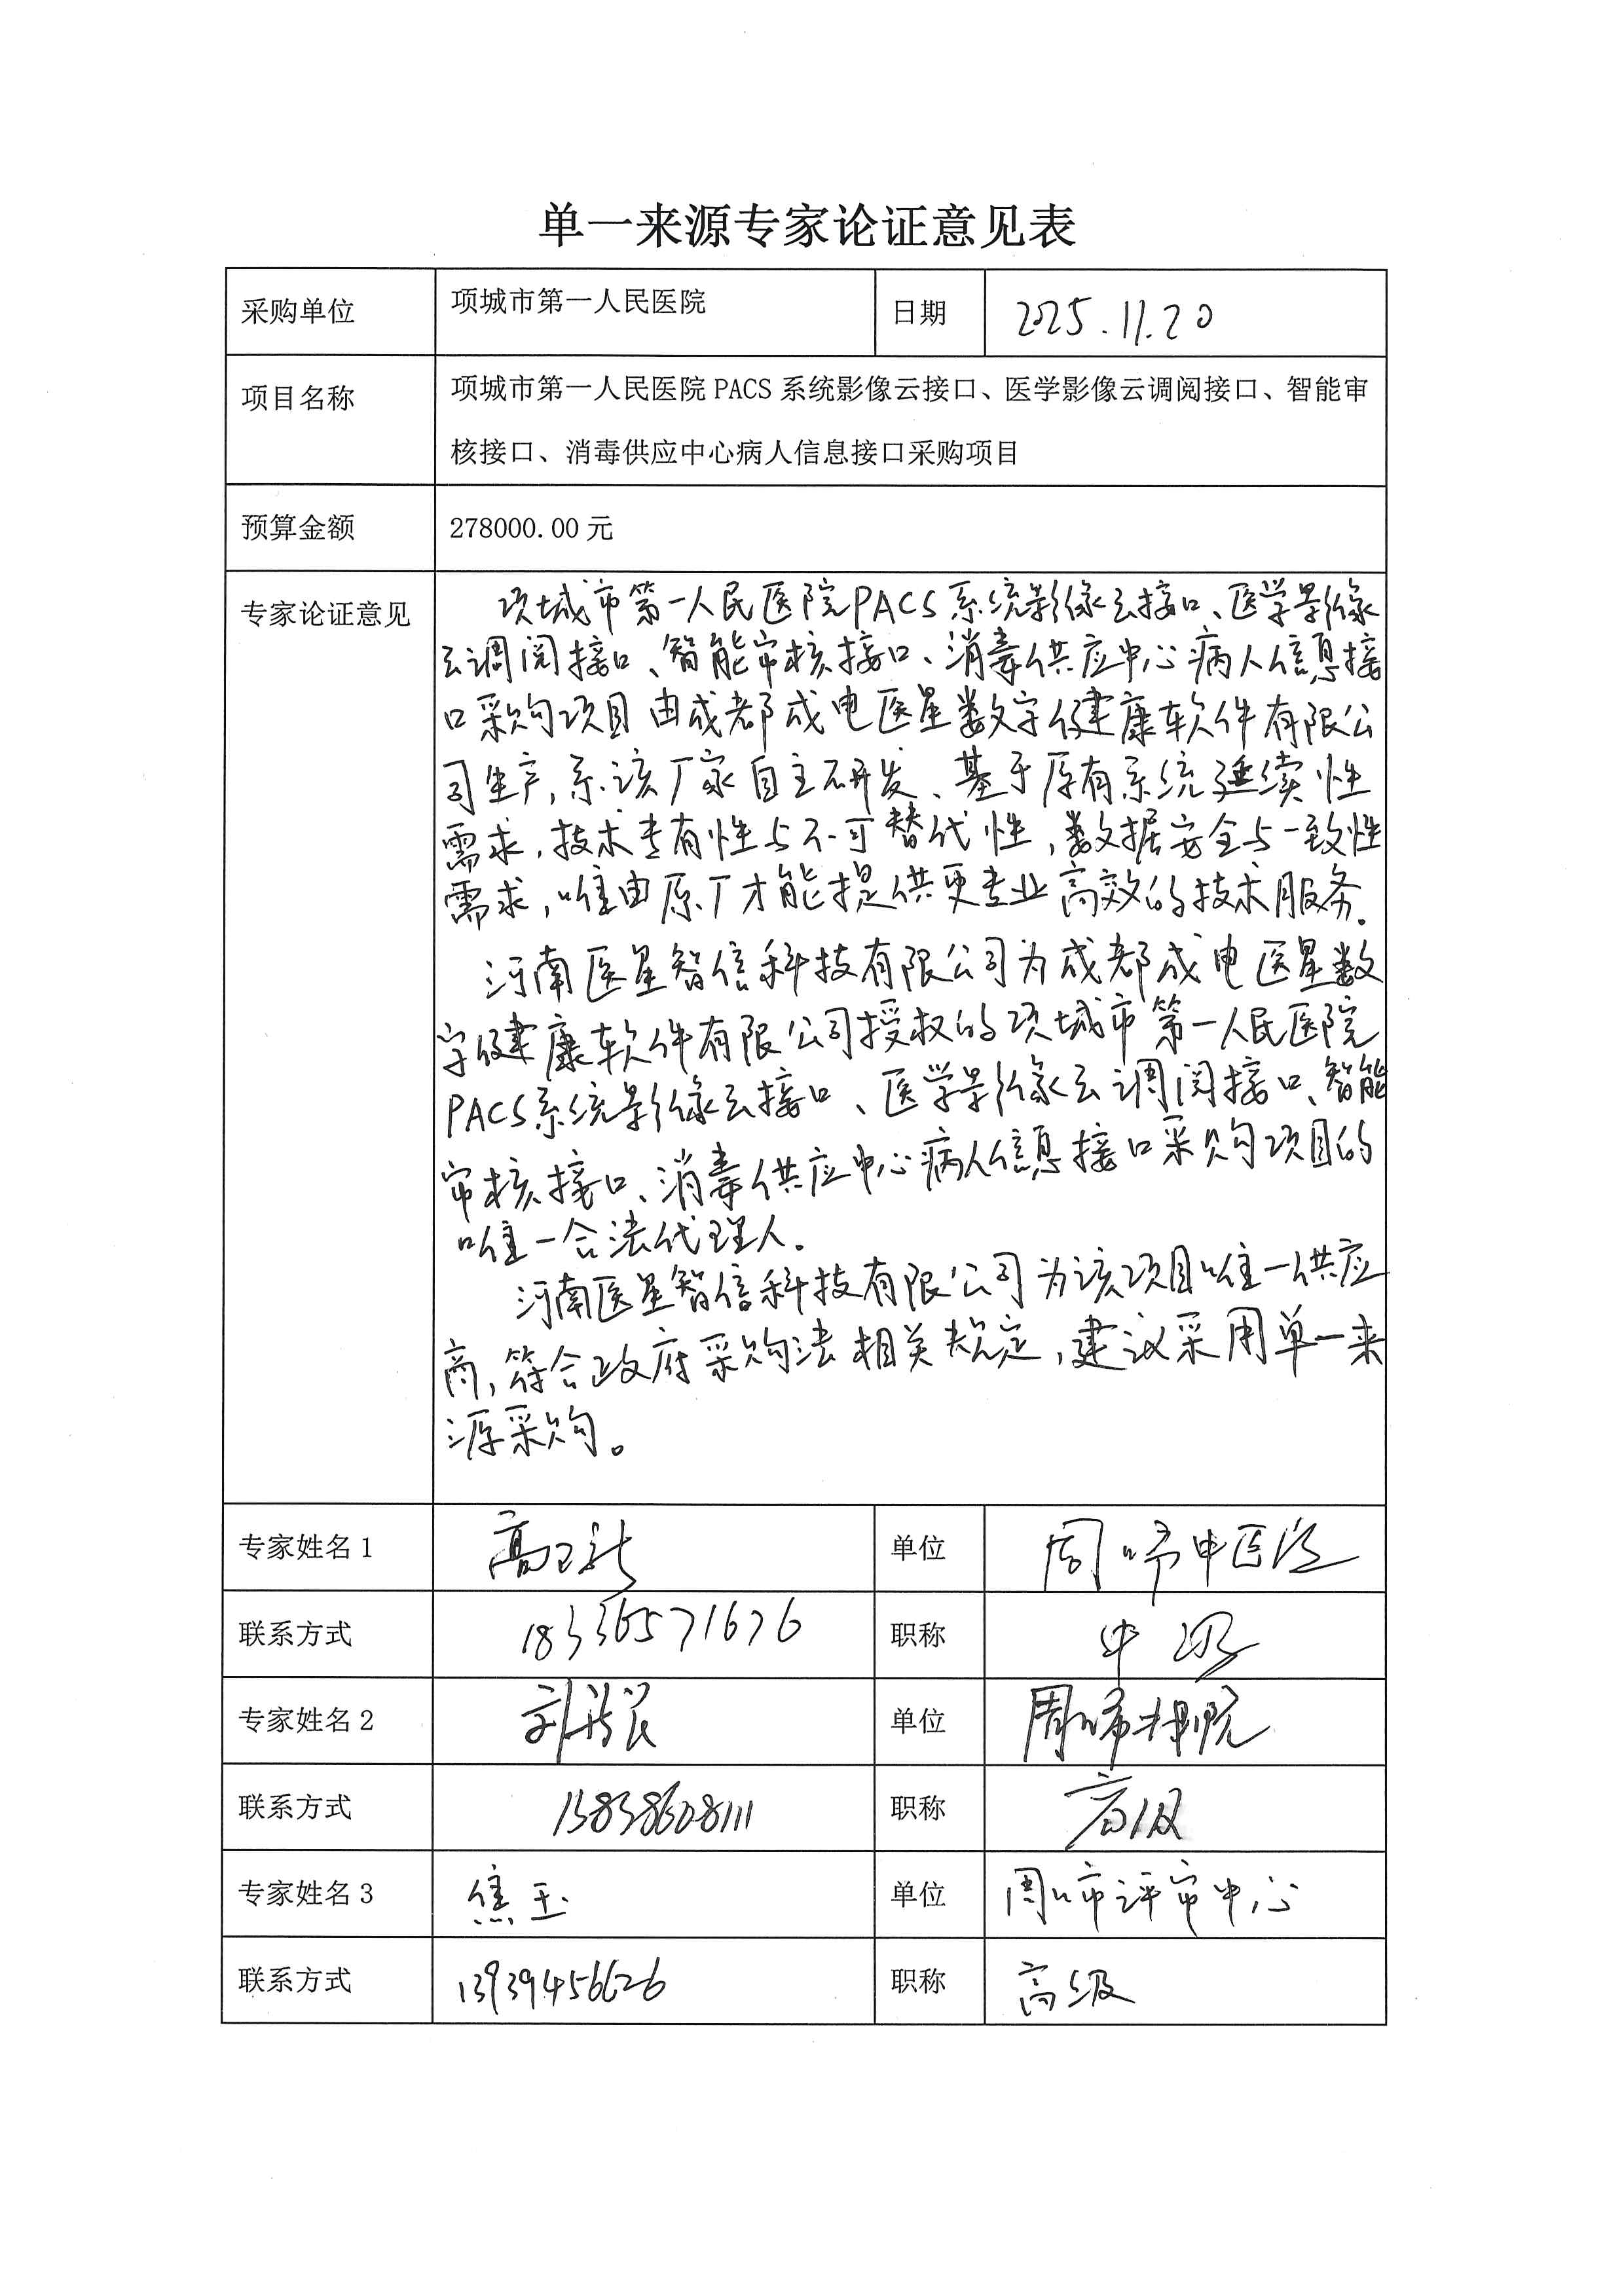 单一来源专家论证意见表
采购单位 项城市第一人民医院 日期 2025.11.20
项目名称 项城市第一人民医院 PACS 系统影像云接口、医学影像云调阅接口、智能审
核接口、消毒供应中心病人信息接口采购项目
预算金额 278000.00 元
专家论证意见 项城市第一人民医院PACS系统影像云接口、医学影像
云调阅接口、智能审核接口、消毒供应中心病人信息接
口采购项目由成都成电医星数字健康软件有限公
司生产,系该厂家自主研发、基于原有系统延续性
需求,技术专有性与不可替代性,数据安全与一致性
需求,唯由原厂才能提供更专业高效的技术服务。
河南医星智信科技有限公司为成都成电医星数
字健康软件有限公司授权的项城市第一人民医院
PACS系统影像云接口、医学影像云调阅接口、智能
审核接口、消毒供应中心病人信息接口采购项目的
唯一合法代理人。
河南医星智信科技有限公司为该项目唯一供应
商,符合政府采购法相关规定,建议采用单一来
源采购。
专家姓名 1 单位 周口市中医院
联系方式 18336571676 职称 中级
专家姓名 2 单位
联系方式 13838608111 职称 高级
专家姓名 3 焦玉 单位 周口市评审中心
联系方式 13939456626 职称 高级